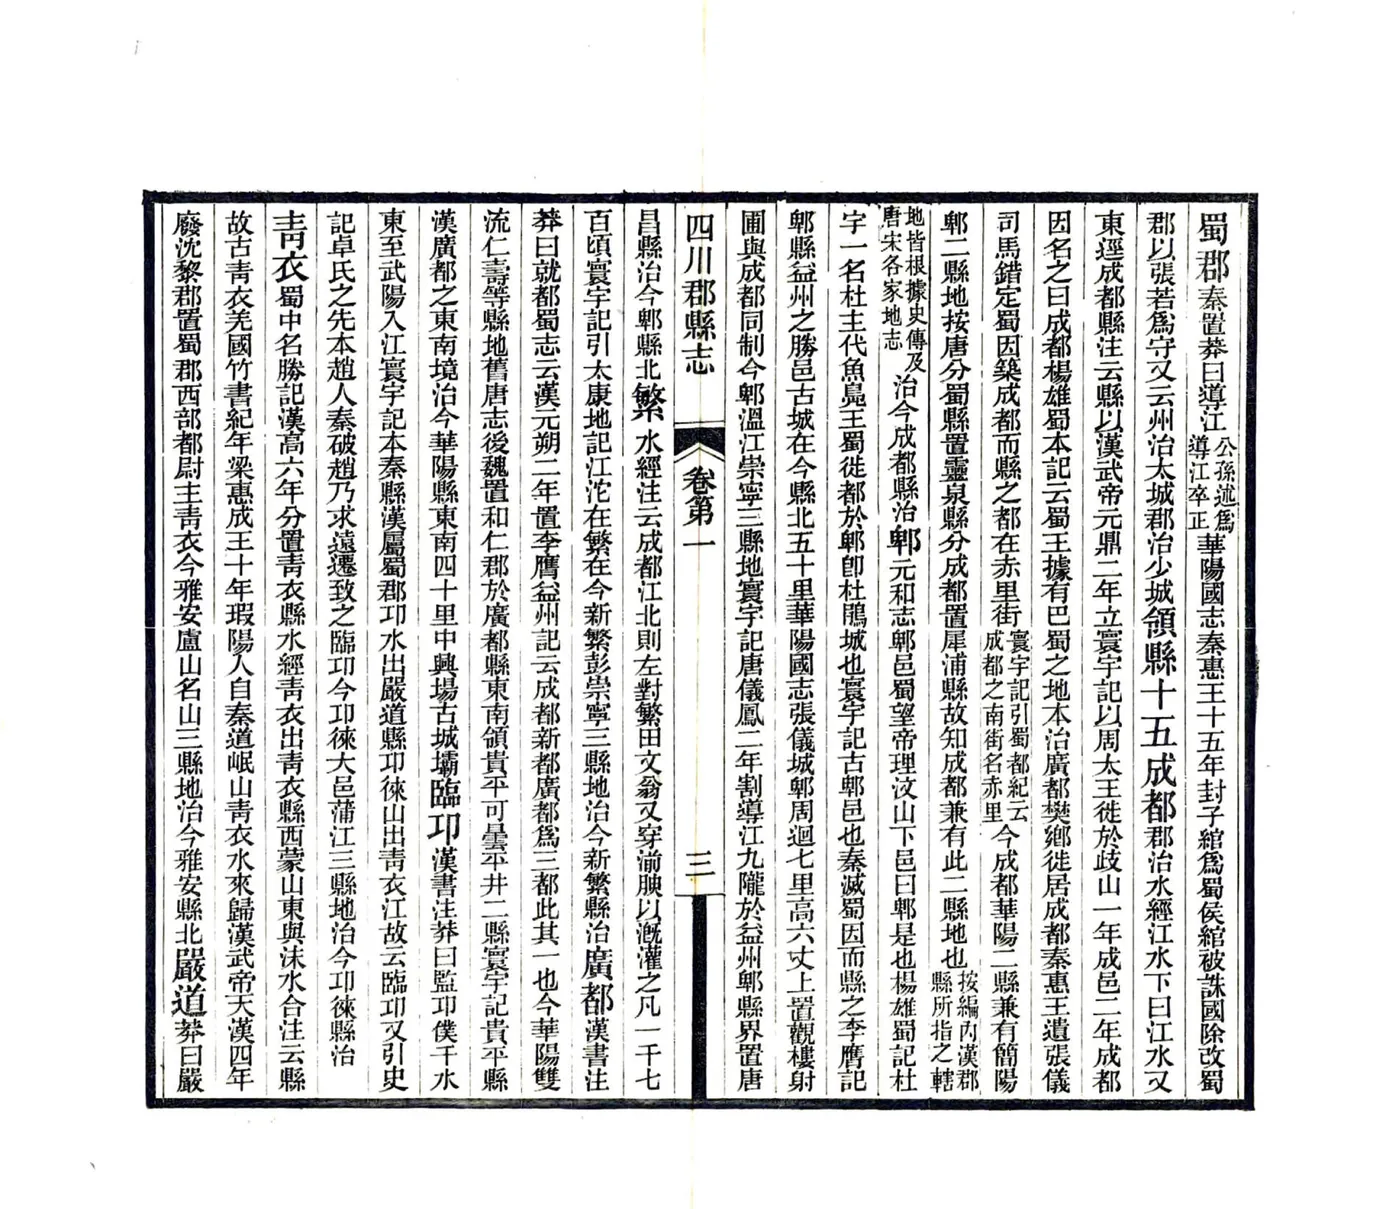 蜀郡秦置莽曰導江公孫述爲導江卒正華陽國志秦惠王十五年封子綰爲蜀侯綰被誅國除改蜀
郡以張若爲守又云州治太城郡治少城領縣十五成都郡治水經江水下曰江水又
東逕成都縣注云縣以漢武帝元鼎二年立寰宇記以周太王徙於歧山一年成邑二年成都
因名之曰成都楊雄蜀本記云蜀王據有巴蜀之地本治廣都樊鄉徙居成都秦惠王遣張儀
司馬錯定蜀因築成都而縣之都在赤里街寰宇記引蜀都紀云成都之南街名赤里今成都華陽二縣兼有簡陽
郫二縣地按唐分蜀縣置靈泉縣分成都置犀浦縣故知成都兼有此二縣地也按編內漢郡縣所指之轄
地皆根據史傳及唐宋各家地志治今成都縣治郫元和志郫邑蜀望帝理汶山下邑曰郫是也楊雄蜀記杜
宇一名杜主代魚鳧王蜀徙都於郫卽杜鵑城也寰宇記古郫邑也秦滅蜀因而縣之李膺記
郫縣益州之勝邑古城在今縣北五十里華陽國志張儀城郫周迴七里高六丈上置觀樓射
圃與成都同制今郫溫江崇寧三縣地寰宇記唐儀鳳二年割導江九隴於益州郫縣界置唐
四川郡縣志 卷第一 三
昌縣治今郫縣北繁水經注云成都江北則左對繁田文翁又穿湔腴以漑灌之凡一千七
百頃寰宇記引太康地記江沱在繁在今新繁彭崇寧三縣地治今新繁縣治廣都漢書注
莽曰就都蜀志云漢元朔二年置李膺益州記云成都新都廣都爲三都此其一也今華陽雙
流仁壽等縣地舊唐志後魏置和仁郡於廣都縣東南領貴平可曇平井二縣寰宇記貴平縣
漢廣都之東南境治今華陽縣東南四十里中興場古城壩臨邛漢書注莽曰監邛僕千水
東至武陽入江寰宇記本秦縣漢屬蜀郡邛水出嚴道縣邛徠山出靑衣江故云臨邛又引史
記卓氏之先本趙人秦破趙乃求遠遷致之臨邛今邛徠大邑蒲江三縣地治今邛徠縣治
靑衣蜀中名勝記漢高六年分置靑衣縣水經靑衣出靑衣縣西蒙山東與沫水合注云縣
故古靑衣羌國竹書紀年梁惠成王十年瑕陽人自秦道岷山靑衣水來歸漢武帝天漢四年
廢沈黎郡置蜀郡西部都尉主靑衣今雅安盧山名山三縣地治今雅安縣北嚴道莽曰嚴